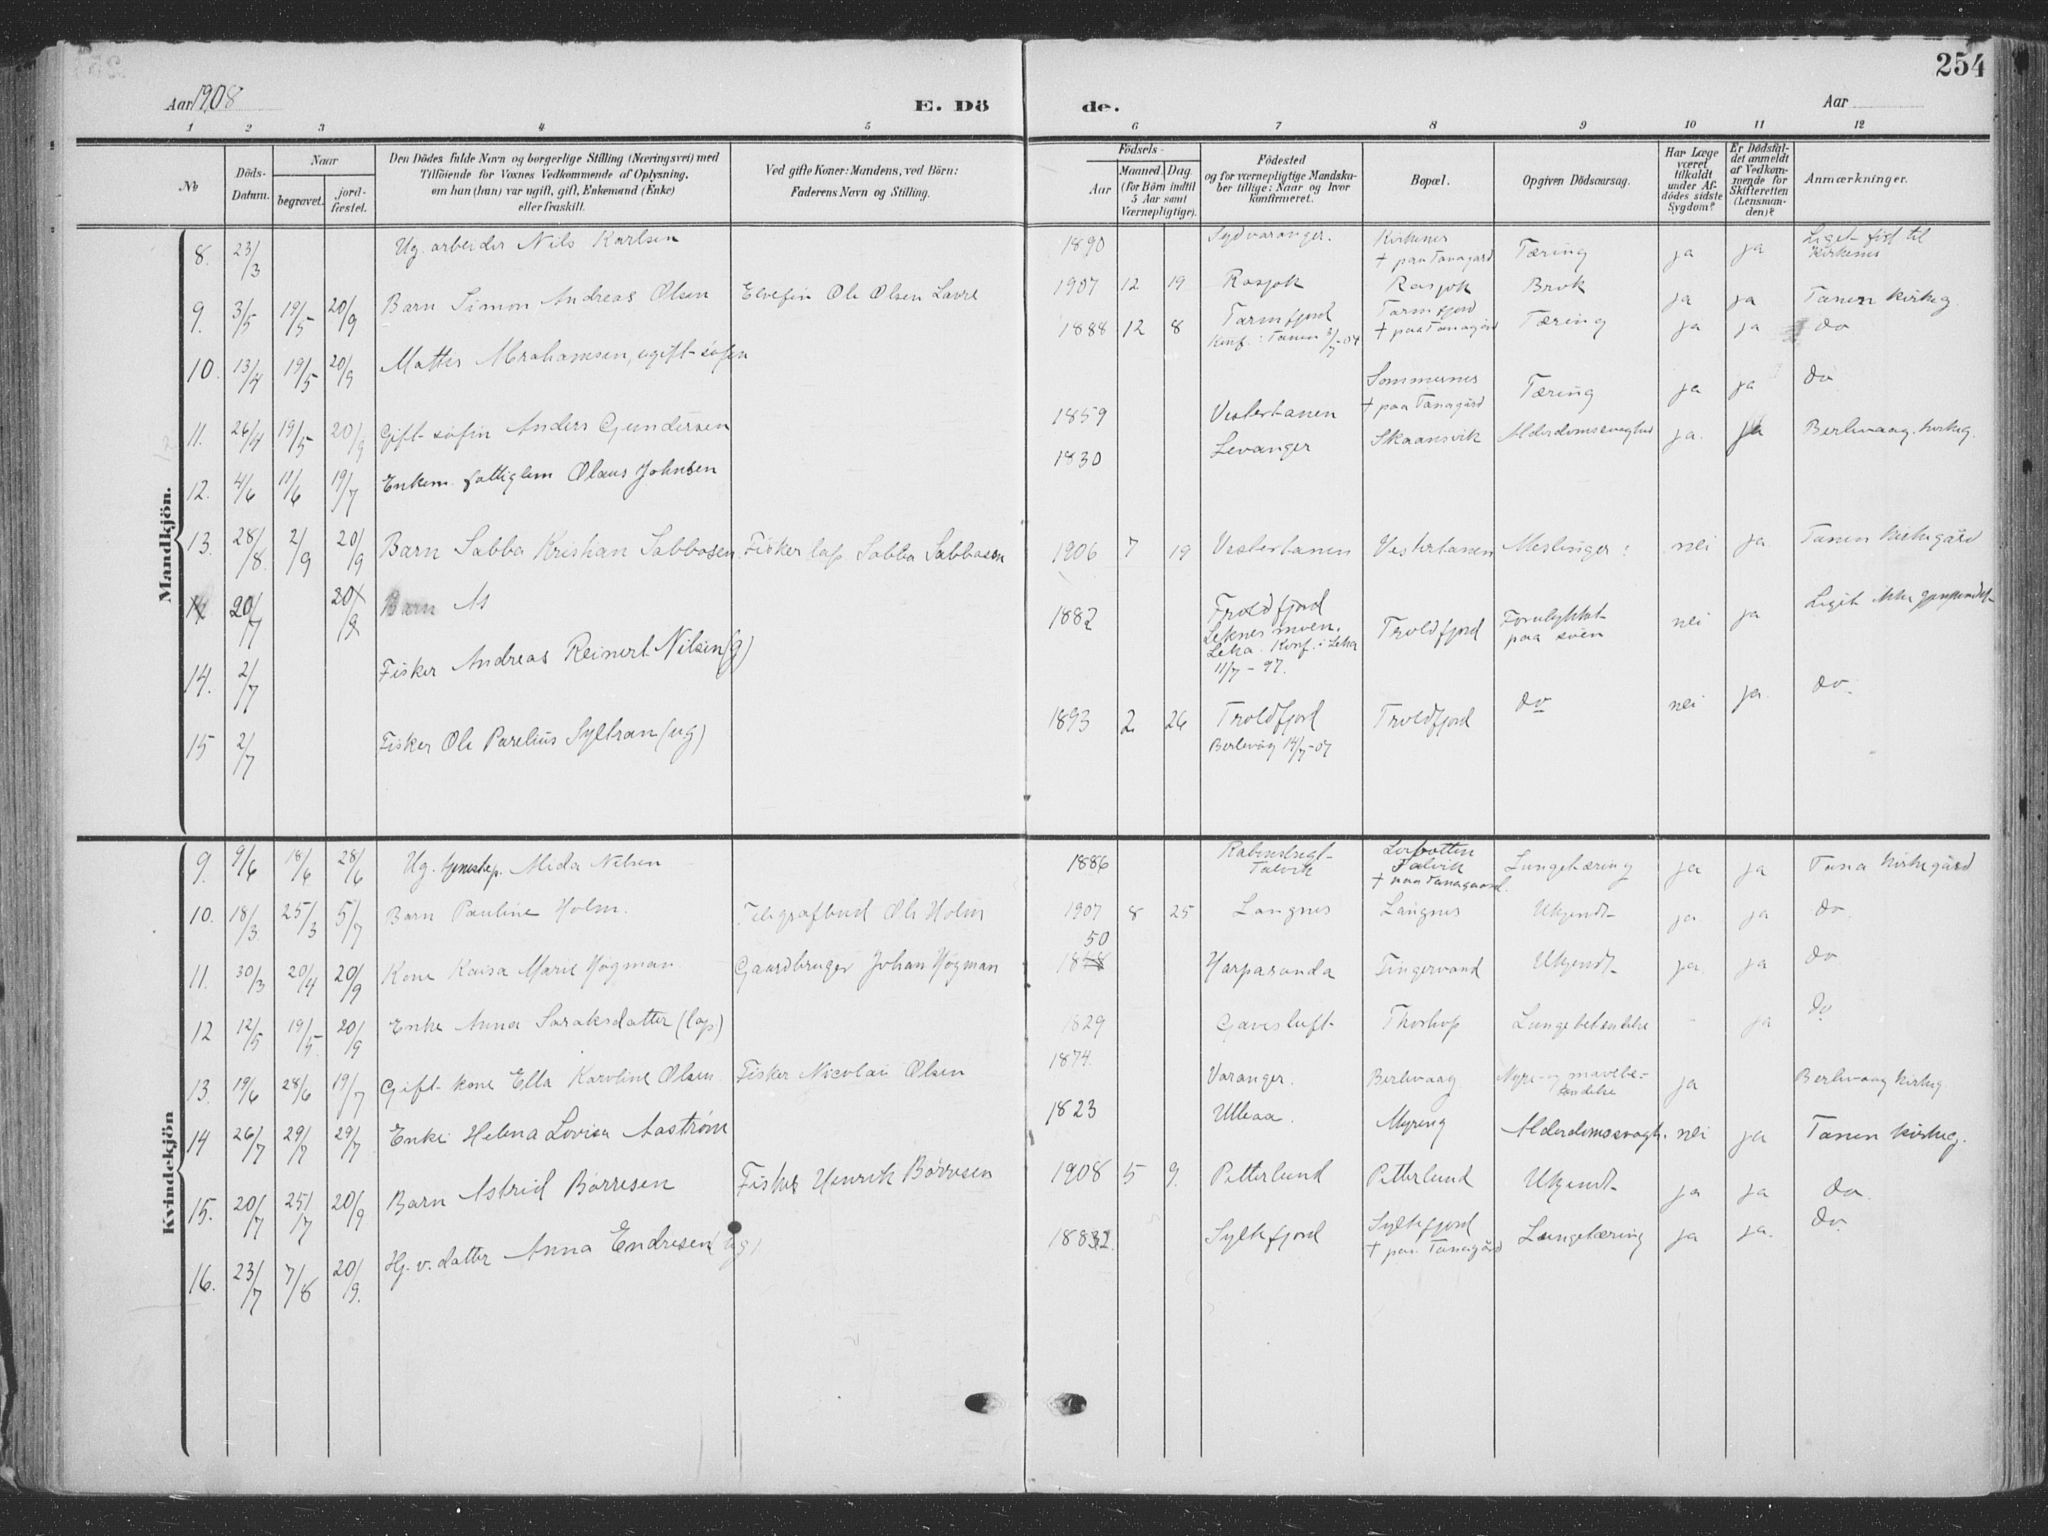 254
Aar 1908
E. Dö de.
Aar
1 2 3 4 5 6 7 8 9 10 11 12
No
Döds-Datum.
Naar
begravet.
jord-fæstet.
Den Dödes fulde Navn og borgerlige Stilling (Næringsvei) med
Tilföiende for Voxnes Vedkommende af Oplysning,
om han (hun) var ugift, gift, Enkemand (Enke)
eller fraskilt.
Ved gifte Koner: Mandens, ved Börn:
Faderens Navn og Stilling.
Födsels-
Aar
Maaned. Dag.
(for Börn indtil
5 Aar samt
Værnepligtige).
Födested
og for værnepligtige Mandska-
ber tillige: Naar og hvor
konfirmeret.
Bopæl.
Opgiven Dödsaarsag.
Har Læge
været
tilkaldt
under Af-
dödes sidste
Sygdom?
Er Dödsfal-
det anmeldt
af Vedkom-
mende for
Skifteretten
(Lensman-
den)?
Anmærkninger.
Mandkjön.
8. 23/3 Ug. arbeider Nils Karlsen 1890 Sydvaranger. Kirkenes + paa Tanagård Tæring ja ja Liget ført til Kirkenes
9. 3/5 19/5 20/9 Barn Simon Andreas Olsen Elvefin Ole Olsen Lavre 1907 12 19 Rasjok Rasjok Brok ja ja Tanen kirkeg.
10. 13/4 19/5 20/9 Mattis Abrahamsen, ugift søfin 1888 12 8 Tarmfjord Konf. i Tanen 3/7-04 Tarmfjord + paa Tanagård Tæring ja ja do
11. 26/4 19/5 20/9 Gift søfin Anders Gundersen 1859 Vestertanen Sommernes + paa Tanagård Tæring ja ja do
12. 4/6 11/6 19/7 Enkem. fattiglem Olaus Johnsen 1830 Levanger Skaansvik Alderdomssvaghed ja. ja Berlevaag. kirkeg.
13. 28/8. 2/9 20/9 Barn Sabba Kristian Sabbasen. Fisker lap Sabba Sabbasen 1906 7 19 Vestertanen Vestertanen Meslinger nei ja Tanen kirkegård
14 20/7 20/9 Barn As
14. 2/7 Fisker Andreas Reinert Nilsen (g) 1882 Troldfjord Leknesmoen. Leka. Konf. i Leka 11/7-97. Troldfjord Forulykket paa søen nei ja Liget ikke gjenfundet
15 2/7 Fisker Ole Parelius Syltran (ug) 1893 2 26 Troldfjord Berlevåg 14/7-07 Troldfjord do nei ja. do.
Kvindekjön
9. 9/6 18/6 28/6 Ug. tjenestep. Alida Nilsen 1886 Talvik Talvik + paa Tanagaard. Lungetæring ja ja Tana kirkegård
10. 18/3. 25/3 5/7 Barn Pauline Holm. Telegrafbud Ole Holm 1907 8 25 Langnes Langnes Ukjendt ja. ja do
11. 30/3 20/4 20/9 Kone Kaisa Marie Høgman Gaardbruger Johan Høgman 1848 50 Harparanda Fingervand Ukjendt ja. ja do
12 12/5 19/5. 20/9 Enke Anna Saraksdatter (lap) 1829 Gavesluft Thorhop Lungebetændelse - ja do
13. 19/6 28/6 19/7 Gift kone Ella Karoline Olsen. Fisker Nicolai Olsen 1874. Varanger. Berlevaag Nyre- og mavebetændelse ja Berlevaag kirkeg
14 26/7 29/7 29/7 Enke Helena Lovisa Aastrøm 1823 Uleaa. Myreng Alderdomssvagh. nei ja Tanen kirkeg.
15. 20/7 25/7 20/9 Barn Astrid Børresen Fisker Henrik Børresen 1908 5 9. Petterlund Petterlund Ukjendt ja ja do.
16. 23/7 7/8 20/9. Hj. v. datter Anna Endresen (ug) 1882. Syltefjord Syltefjord + paa Tanagård Lungetæring ja ja. do.